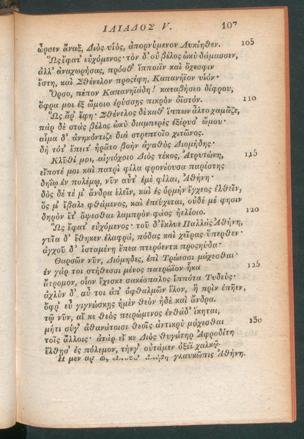 ΙΛΙΑΔΟΣ V. 107
ὦρσεν ἄναξ, Διὸς υἱὸς, ἀπορνύμενον Λυκίηθεν. 105
Ὣς ἔφατ' εὐχόμενος· τὸν δ' οὐ βέλος ὠκὺ δάμασσεν,
ἀλλ' ἀναχωρήσας, πρόσθ' ἵπποιϊν καὶ ὄχεσφιν
ἔστη, καὶ Σθένελον προσέφη, Καπανήϊον υἱόν·
Ὄρσο, πέπον Καπανηϊάδη! καταβήσεο δίφρου,
ὄφρα μοι ἐξ ὤμοιο ἐρύσσῃς πικρὸν ὀϊστόν. 110
Ὣς ἄρ' ἔφη· Σθένελος δὲ καθ' ἵππων ἆλτο χαμᾶζε,
πὰρ δὲ στὰς βέλος ὠκὺ διαμπερὲς ἐξέρυσ' ὤμου·
αἷμα δ' ἀνηκόντιζε διὰ στρεπτοῖο χιτῶνος.
δὴ τότ' ἔπειτ' ἠρᾶτο βοὴν ἀγαθὸς Διομήδης·
Κλῦθί μοι, αἰγιόχοιο Διὸς τέκος, Ἀτρυτώνη, 115
εἴποτέ μοι καὶ πατρὶ φίλα φρονέουσα παρέστης
δηΐῳ ἐν πολέμῳ, νῦν αὖτ' ἐμὲ φίλαι, Ἀθήνη·
δὸς δέ τέ μ' ἄνδρα ἑλεῖν, καὶ ἐς ὁρμὴν ἔγχεος ἐλθεῖν,
ὅς μ' ἔβαλε φθάμενος, καὶ ἐπεύχεται, οὐδέ μέ φησιν
δηρὸν ἔτ' ὄψεσθαι λαμπρὸν φάος ἠελίοιο. 120
Ὣς ἔφατ' εὐχόμενος· τοῦ δ' ἔκλυε Παλλὰς Ἀθήνη,
γυῖα δ' ἔθηκεν ἐλαφρὰ, πόδας καὶ χεῖρας ὕπερθεν·
ἀγχοῦ δ' ἱσταμένη ἔπεα πτερόεντα προσηύδα·
Θαρσῶν νῦν, Διόμηδες, ἐπὶ Τρώεσσι μάχεσθαι·
ἐν γάρ τοι στήθεσσι μένος πατρώϊον ἧκα 125
ἄτρομον, οἷον ἔχεσκε σακέσπαλος ἱππότα Τυδεύς·
ἀχλὺν δ' αὖ τοι ἀπ' ὀφθαλμῶν ἕλον, ἣ πρὶν ἐπῆεν,
ὄφρ' εὖ γιγνώσκῃς ἠμὲν θεὸν ἠδὲ καὶ ἄνδρα.
τῷ νῦν, αἴ κε θεὸς πειρώμενος ἐνθάδ' ἵκηται,
μήτι σύγ' ἀθανάτοισι θεοῖς ἀντικρὺ μάχεσθαι 130
τοῖς ἄλλοις· ἀτὰρ εἴ κε Διὸς θυγάτηρ Ἀφροδίτη
ἔλθῃσ' ἐς πόλεμον, τήνγ' οὐτάμεν ὀξέϊ χαλκῷ.
Ἡ μὲν ἄρ' ὣς γλαυκῶπις Ἀθήνη.